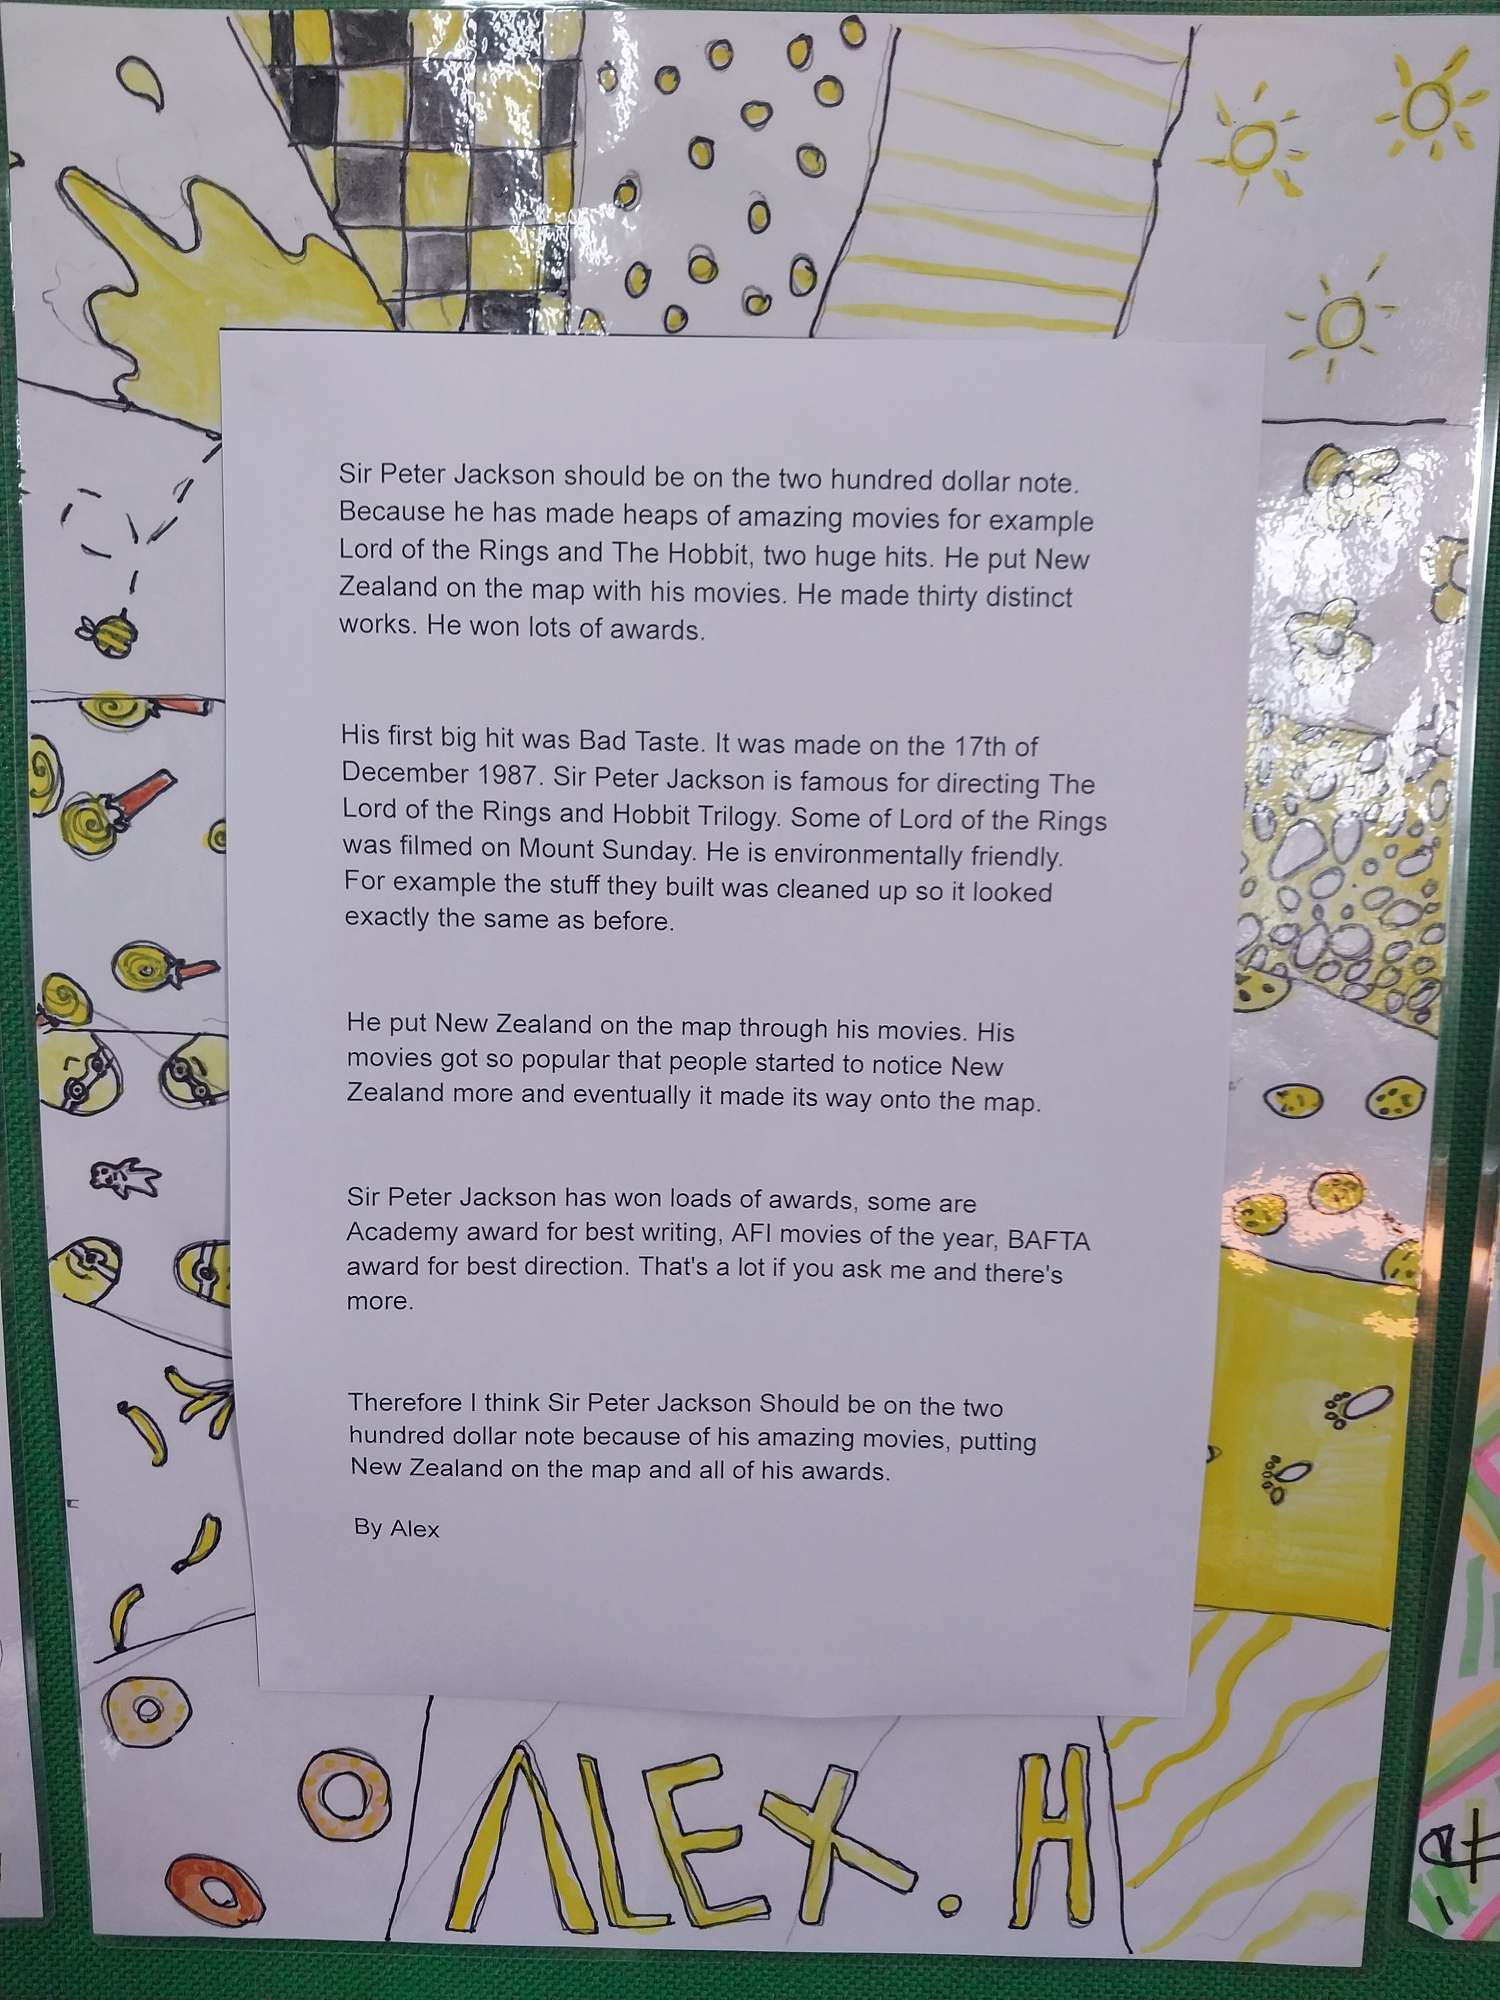 Sir Peter Jackson should be on the two hundred dollar note.
Because he has made heaps of amazing movies for example
Lord of the Rings and The Hobbit, two huge hits. He put New
Zealand on the map with his movies. He made thirty distinct
works. He won lots of awards.
His first big hit was Bad Taste. It was made on the 17th of
December 1987. Sir Peter Jackson is famous for directing The
Lord of the Rings and Hobbit Trilogy. Some of Lord of the Rings
was filmed on Mount Sunday. He is environmentally friendly.
For example the stuff they built was cleaned up so it looked
exactly the same as before.
He put New Zealand on the map through his movies. His
movies got so popular that people started to notice New
Zealand more and eventually it made its way onto the map.
Sir Peter Jackson has won loads of awards, some are
Academy award for best writing, AFI movies of the year, BAFTA
award for best direction. That's a lot if you ask me and there's
more.
Therefore I think Sir Peter Jackson Should be on the two
hundred dollar note because of his amazing movies, putting
New Zealand on the map and all of his awards.
By Alex
ALEX.H